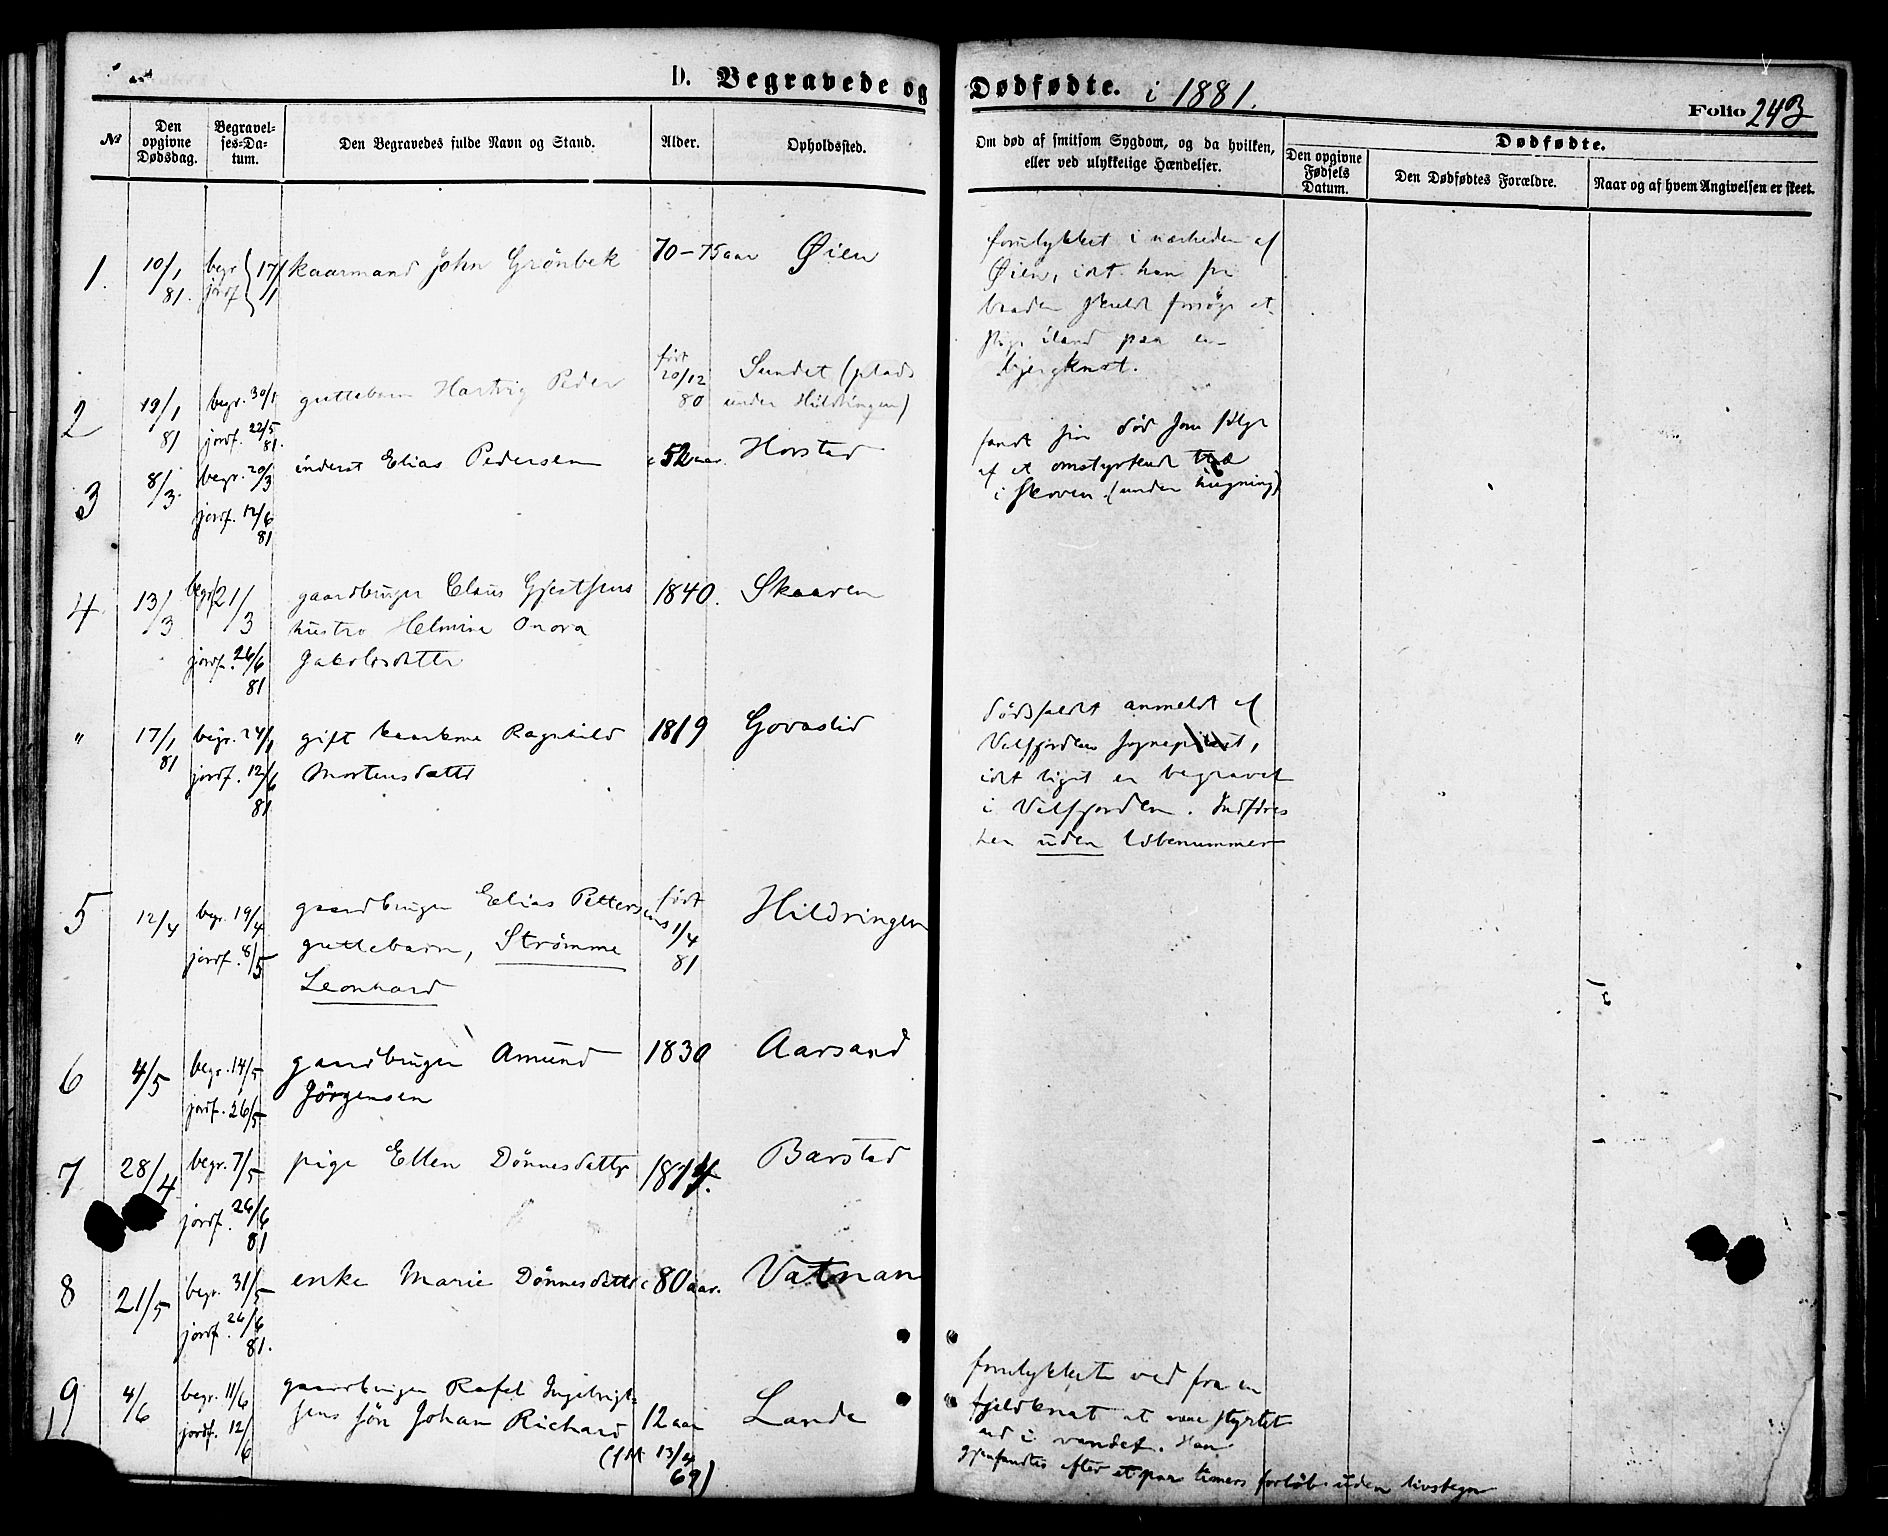 D. Begravede og Dødfødte. i 1881.
Folio 243
№
Den opgivne Dødsdag.
Begravelses-Datum.
Den Begravedes fulde Navn og Stand.
Alder.
Opholdssted.
Om død af smitsom Sygdom, og da hvilken,
eller ved ulykkelige Hændelser.
Dødfødte.
Den opgivne Fødsels Datum.
Den Dødfødtes Forældre.
Naar og af hvem Angivelsen er skeet.
1. 10/1 81. begr. jordf. } 17/1 kaarmand John Grönbek 70-75 aar Øien
forulykket i nærheden af
Øien, idet han fra
baaden skulde forsøge at
stige iland paa en
bjergknat.
2 19/1 81 begr. 30/1 jordf. 22/5 81. guttebarn Hartvig Peder født 20/12 80 Sundet (plads
under Hildringen)
3 8/3. begr. 20/3 jordf. 12/6 81 inderst Elias Pedersen c 52 aar. Horstad
fandt sin død som følge
af et omstyrtende træ
i skoven. (under hugning)
4 13/3 begr. 21/3 jordf. 26/6 81 gaardbruger Claus Gjestsens 1840. Skaaren
hustro Helmine Onora
Jakobsdatter
" 17/1 81 begr. 24/1 jordf. 12/6 81 gift kaarkone Ragnhild 1819 Govaslid
Mortensdatter
dødsfaldet anmeldt af
Velfjordens sognepræst,
idet liget er begravet
i Velfjorden. Indføres
her uden løbenummer
5 12/4 begr. 19/4 jordf. 8/5 gaardbruger Elias Petters født 1/4 81 Hildringen
ens guttebarn, Strømme
Leonhard
6 4/5 begr. 14/5 jordf. 26/5 gaardbruger Amund 1830 Aarsand
Jörgensen
7 28/4 begr. 7/5 jordf. 26/6 81 pige Ellen Dönnesdatter 1814. Barstad
8 21/5 begr. 31/5 jordf. 26/6 81. enke Marie Dönnesdatter c 80 aar. Vatnan
9 4/6 begr. 11/6 jordf. 12/6 gaardbruger Rafel Ingebrigt-
sens søn Johan Richard 12 aar Lande
(født 13/4 69)
forulykket ved fra en
fjeldknat at være styrtet
ud i vandet. Han
gjenfandtes efter et par timers forløb uden livstegn